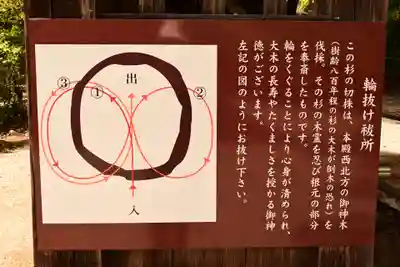 輪抜け祓所
この杉の切株は、本殿西北方の御神木
(樹齢八百年程の杉の大木が倒木の恐れ)を
伐採。その杉の木霊を忍び根元の部分
を奉斎したものです。
輪をくぐることにより心身が清められ、
大木の長寿やたくましさを授かる御神
徳がございます。
左記の図のようにお抜け下さい。
出
③
①
②
入